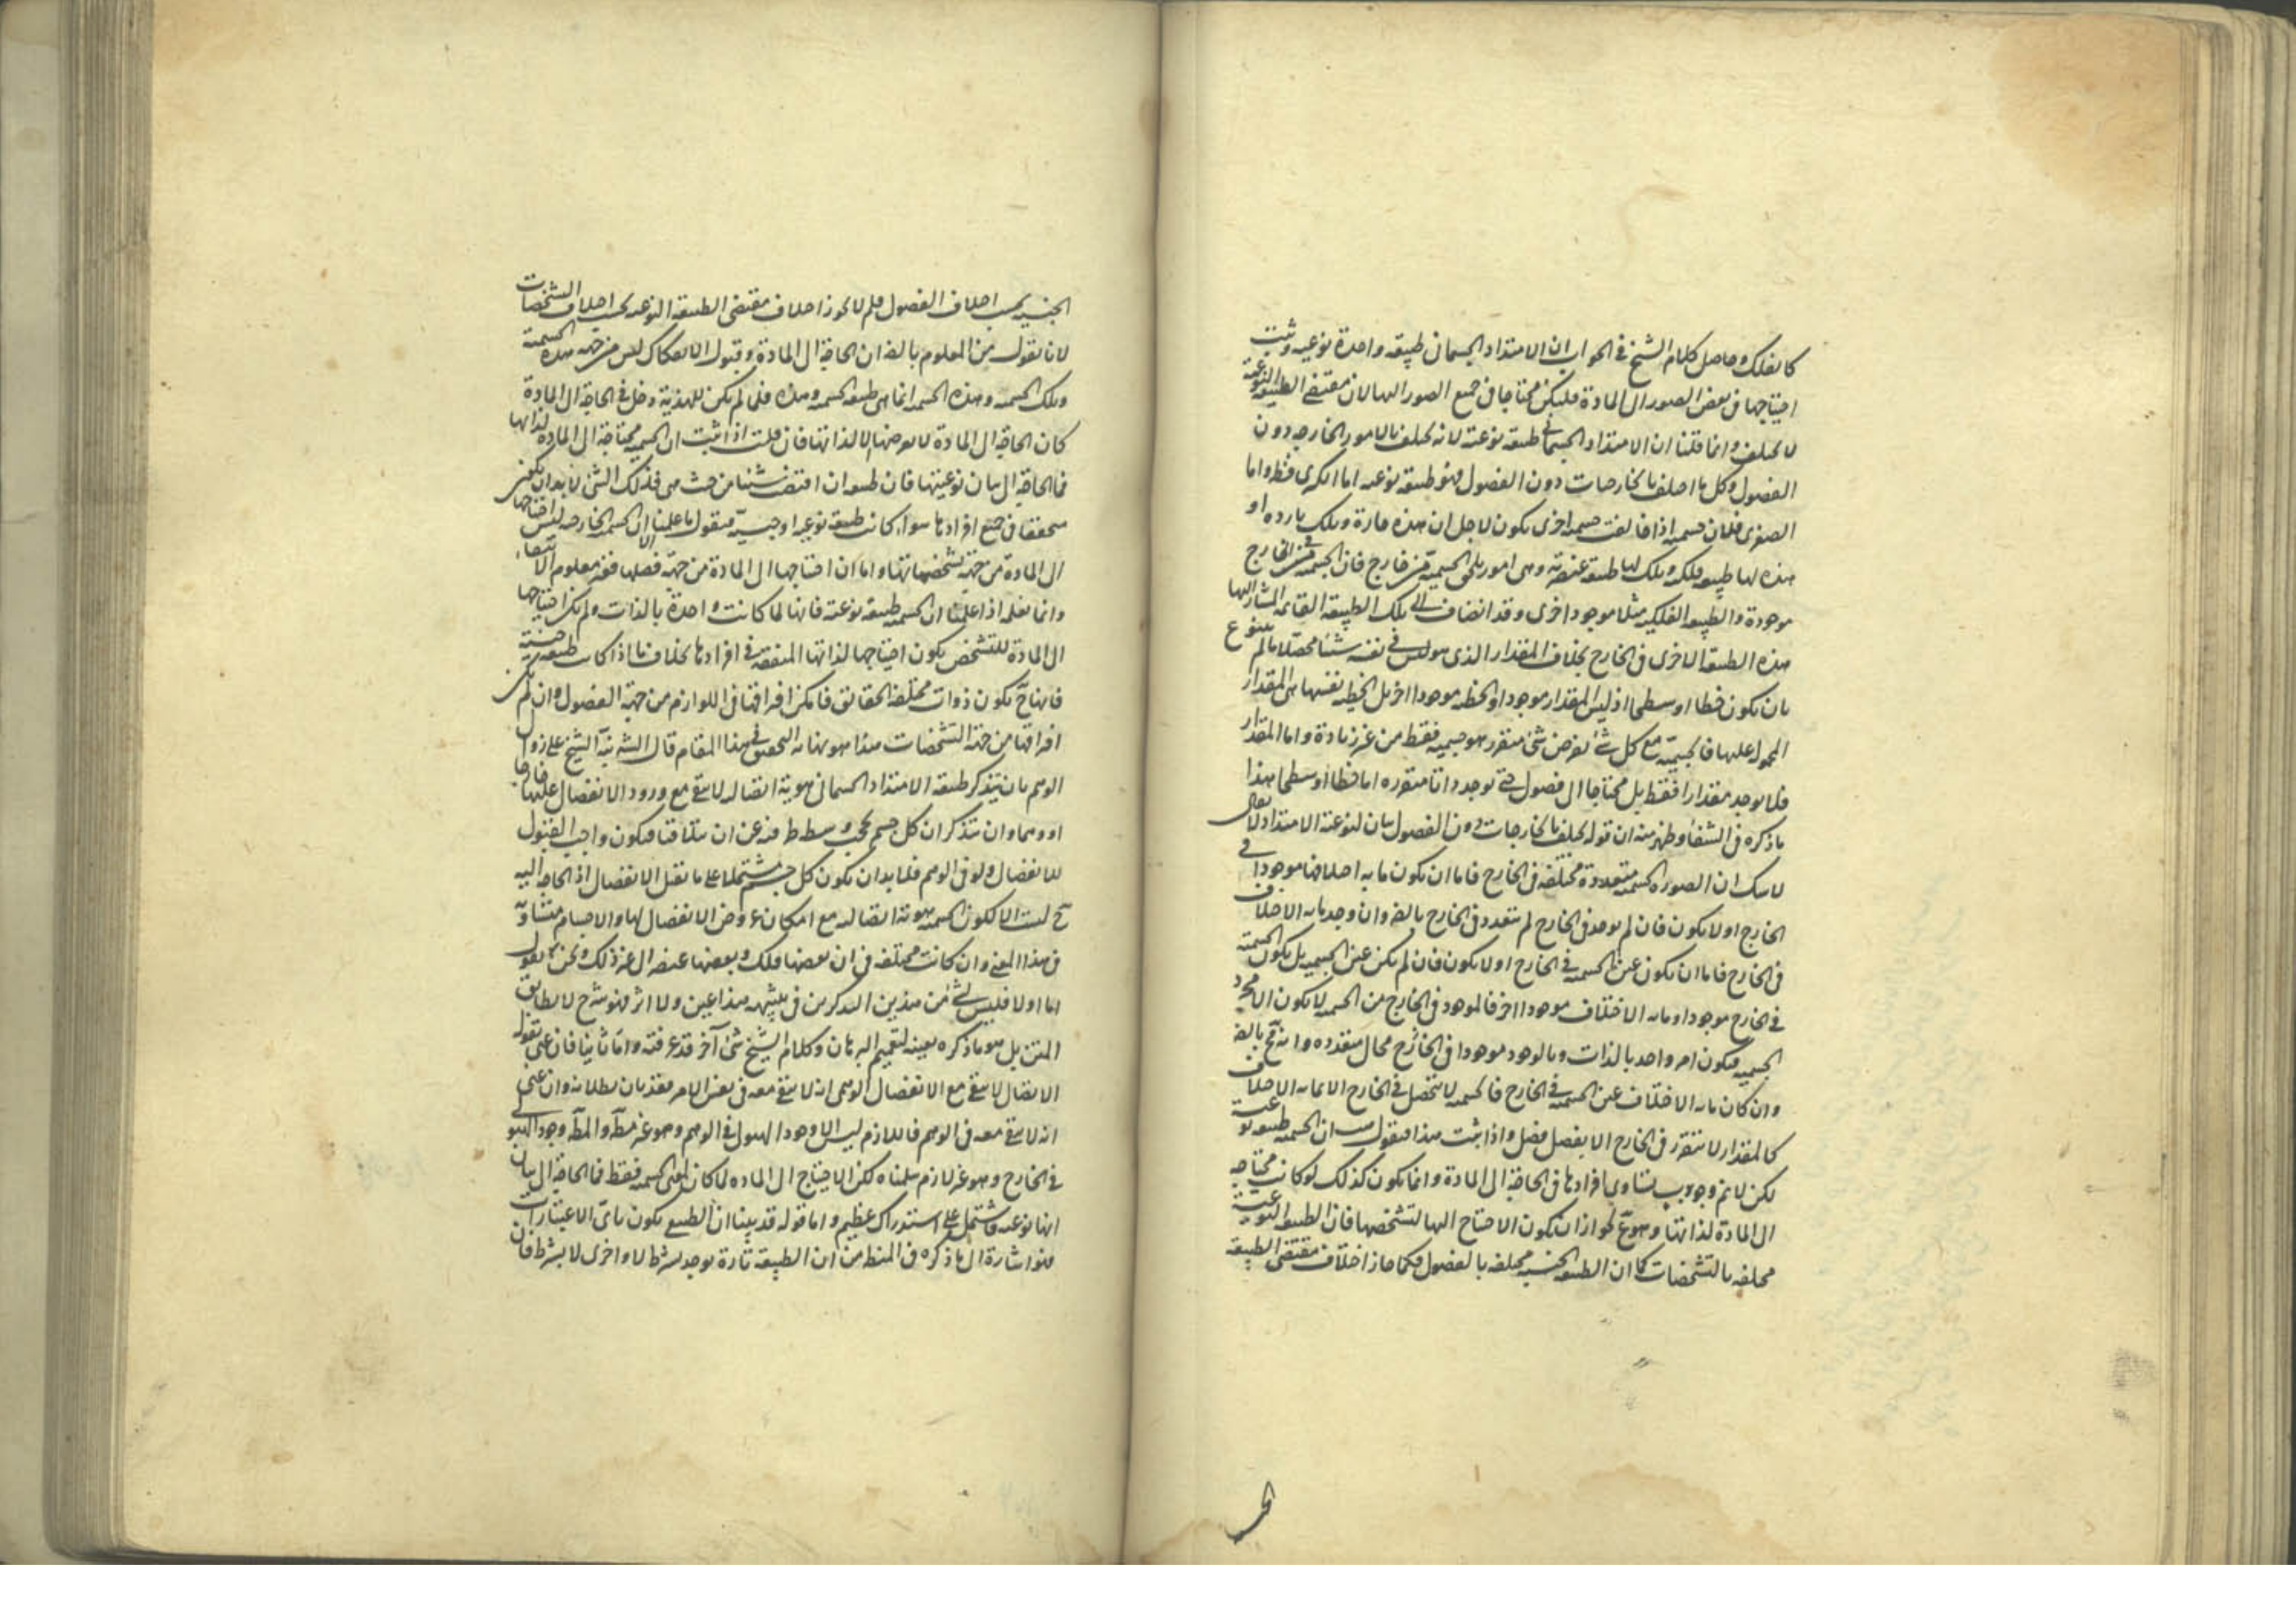 كالفلك وحاصل كلام الشيخ في الجواب ان الامتداد الجسماني طبيعة واحدة نوعية وثبت
احتياجها في بعض الصور الى المادة فليكن محتاجا في جميع الصور اليها لان مقتضى الطبيعة النوعية
لا تختلف وانما قلنا ان الامتداد الجسماني طبيعة نوعية لانه تختلف بالامور الخارجة دون
الفصول وكل ما اختلف بالخارجات دون الفصول فهو طبيعة نوعية اما الكبرى فظ واما
الصغرى فلان جسمية اذا خالفت جسمية اخرى يكون لاجل ان هذه حارة وتلك باردة او
هذه لها طبيعة فلكية وتلك لها طبيعة عنصرية وهي امور تلحق الجسمية من خارج فان الجسمية في الخارج
موجودة والطبيعة الفلكية مثلا موجود اخرى وقد انضاف الى تلك الطبيعة القائمة المشار اليها
هذه الطبيعة الاخرى في الخارج بخلاف المقدار الذي هو ليس في نفسه شيئا محصلا ما لم يتنوع
بان يكون خطا او سطحا اذ ليس المقدار موجودا والخطية موجودا اخر بل الخطية نفسها هي المقدار
المحمول عليها فالجسمية مع كل شئ يفرض شئ متقرر هو جسمية فقط من غير زيادة واما المقدار
فلا يوجد مقدارا فقط بل محتاجا الى فصول حتى توجد ذاتا متقررة اما خطا او سطحا هذا
ما ذكره في الشفا وظهر منه ان قوله تختلف بالخارجات دون الفصول بيان لنوعية الامتداد لا يقال
لا شك ان الصورة الجسمية متعددة مختلفة في الخارج فاما ان يكون ما به اختلافها موجودا في
الخارج او لا يكون فان لم يوجد في الخارج لم تتعدد في الخارج بالضر وان وجد ما به الاختلاف
في الخارج فاما ان يكون عين الجسمية في الخارج او لا يكون فان لم يكن عين الجسمية بل يكون الجسمية
في الخارج موجودا وما به الاختلاف موجودا اخر فالموجود في الخارج من الجسمية لا يكون الا مجرد
الجسمية فيكون امر واحد بالذات وبالوجود موجودا في الخارج محال متعددة وانه مح بالضر
وان كان ما به الاختلاف عين الجسمية في الخارج فالجسمية لا تتحصل في الخارج الا بما به الاختلاف
كالمقدار لا يتقرر في الخارج الا بفصل فصل واذا ثبت هذا فنقول هب ان الجسمية طبيعة نوعية
لكن لا نم وجوب تساوى افرادها في الحاجة الى المادة وانما يكون كذلك لو كانت محتاجة
الى المادة لذاتها وهو مم لجواز ان يكون الاحتياج اليها لتشخصها فان الطبيعة النوعية
مختلفة بالتشخصات كما ان الطبيعة الجنسية مختلفة بالفصول فكما جاز اختلاف مقتضى الطبيعة
الجنسية بحسب اختلاف الفصول فلم لا يجوز اختلاف مقتضى الطبيعة النوعية بحسب اختلاف التشخصات
لانا نقول من المعلوم بالضر ان الحاجة الى المادة وقبول الانفكاك ليس من جهة هذه الجسمية
وتلك الجسمية وهذه الجسمية انما هي طبيعة الجسمية وهذه فلما لم يكن للهذية دخل في الحاجة الى المادة
كان الحاجة الى المادة لا يعرضها الا لذاتها فان قلت اذا ثبت ان الجسمية محتاجة الى المادة لذاتها
فما الحاجة الى بيان نوعيتها فان طبيعة ان اقتضت شيئا من حيث هي فذلك الشئ لا بد ان يكون
متحققا في جميع افرادها سواء كانت طبيعة نوعية او جنسية فنقول ما علمنا الا ان الجسمية الخارجية ليس احتياجها
الى المادة من جهة تشخصاتها واما ان احتياجها الى المادة من جهة فصلها فغير معلوم الانتفاء
وانما نعلمه اذا علمنا ان الجسمية طبيعة نوعية فانها لما كانت واحدة بالذات ولم يكن احتياجها
الى المادة للتشخص يكون احتياجها لذاتها المتفقة في افرادها بخلاف ما اذا كانت طبيعة جنسية
فانها ح يكون ذوات مختلفة الحقائق فامكن افتراقها في اللوازم من جهة الفصول وان لم يكن
افتراقها من جهة التشخصات هذا هو نهاية التحقيق في هذا المقام قال الشارح نبه الشيخ على زوال
الوهم بان يتذكر طبيعة الامتداد الجسماني هوية اتصالية لا يبقى مع ورود الانفصال عليها خارجا
او وهما وان يتذكر ان كل جسم يحجب وسطه طرفيه عن ان يتلاقيا فيكون واجب القبول
للانفصال ولو في الوهم فلا بد ان يكون كل جسم مشتملا على ما يقبل الانفصال اذ الحاجة اليه
ح ليست الا لكون الجسمية هوية اتصالية مع امكان عروض الانفصال لها والاجسام متساوية
في هذا المعنى وان كانت مختلفة في ان بعضها فلك وبعضها عنصر الى غير ذلك ونحن نقول
اما اولا فليس لشئ من هذين التذكيرين في تنبيهه هذا عين ولا اثر فهو شرح لا يطابق
المتن بل هو ما ذكره بعينه لتعميم البرهان وكلام الشيخ شئ آخر قد عرفته واما ثانيا فان عنى بقوله
الاتصال لا يبقى مع الانفصال الوهمي انه لا يبقى معه في نفس الامر فقد بان بطلانه وان عنى
انه لا يبقى معه في الوهم فاللازم ليس الا وجود الهيولى في الوهم وهو غير المط والمط وجود الهيولى
في الخارج وهو غير لازم سلمناه لكن الاحتياج الى المادة لما كان لمعنى الجسمية فقط فما الحاجة الى بيان
انها نوعية فاشتمل على استدراك عظيم واما قوله قد بينا ان الطبيعي يكون باي الاعتبارات
فهو اشارة الى ما ذكره في المنطق من ان الطبيعة تارة توجد بشرط لا واخرى لا بشرط فان